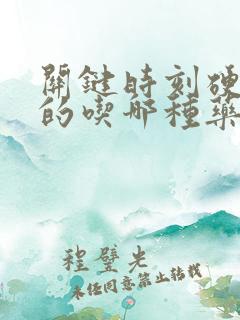 關鍵時刻硬
的喫哪種藥
程璧光
未经同意禁止转载